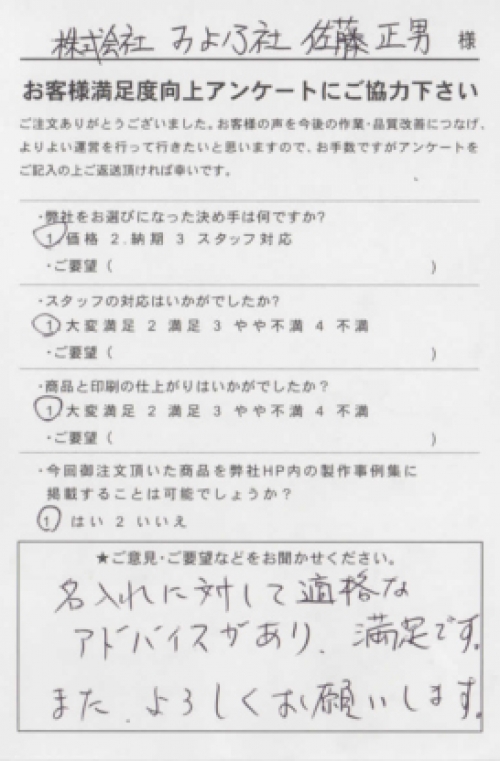 株式会社 みよふ社 佐藤 正男 様
お客様満足度向上アンケートにご協力下さい
ご注文ありがとうございました。お客様の声を今後の作業・品質改善につなげ、
よりよい運営を行って行きたいと思いますので、お手数ですがアンケートを
ご記入の上ご返送頂ければ幸いです。
・弊社をお選びになった決め手は何ですか?
1 価格 2.納期 3 スタッフ対応
・ご要望 ( )
・スタッフの対応はいかがでしたか?
1 大変満足 2 満足 3 やや不満 4 不満
・ご要望 ( )
・商品と印刷の仕上がりはいかがでしたか?
1 大変満足 2 満足 3 やや不満 4 不満
・ご要望 ( )
・今回御注文頂いた商品を弊社HP内の製作事例集に
掲載することは可能でしょうか?
1 はい 2 いいえ
★ご意見・ご要望などをお聞かせください。
名入れに対して適格な
アドバイスがあり、満足です。
また、よろしくお願いします。